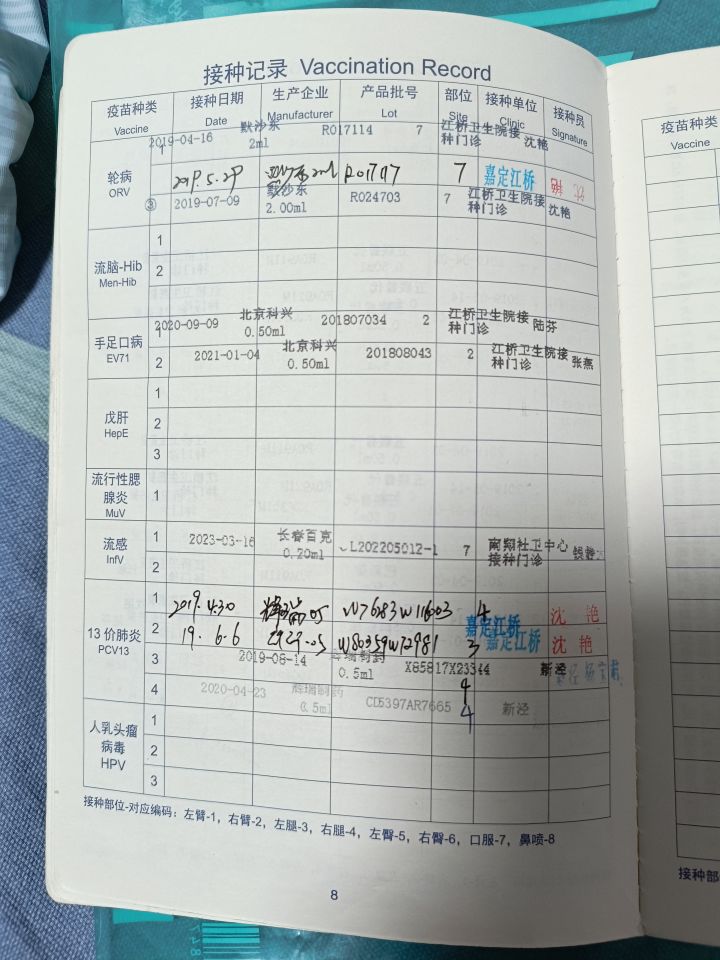 接种记录 Vaccination Record
疫苗种类 接种日期 生产企业 产品批号 部位 接种单位 接种员
Vaccine Date Manufacturer Lot Site Clinic Signature
轮病 ORV
1 2019-04-16 默沙东 2ml R017114 7 江桥卫生院接种门诊 沈艳
2019.5.29 2ml R017 7 嘉定江桥 沈艳
③ 2019-07-09 默沙东 2.00ml R024703 7 江桥卫生院接种门诊 沈艳
流脑-Hib Men-Hib
1
2
手足口病 EV71
1 2020-09-09 北京科兴 0.50ml 201807034 2 江桥卫生院接种门诊 陆芬
2 2021-01-04 北京科兴 0.50ml 201808043 2 江桥卫生院接种门诊 张燕
戊肝 HepE
1
2
3
流行性腮腺炎 MuV
1
流感 InfV
1 2023-03-16 长春百克 0.20ml L202205012-1 7 南翔社卫中心接种门诊
2
13 价肺炎 PCV13
1 2019.4.30 辉瑞 0.5 W7683W11603 4 嘉定江桥 沈艳
2 19.6.6 0.5 W80359W12981 3 嘉定江桥 沈艳
3 2019-08-14 辉瑞制药 0.5ml X85817X23344 4 新泾
4 2020-04-23 辉瑞制药 0.5ml CD5397AR7665 4 新泾
人乳头瘤病毒 HPV
1
2
3
接种部位-对应编码：左臂-1，右臂-2，左腿-3，右腿-4，左臀-5，右臀-6，口服-7，鼻喷-8
8
疫苗种类
Vaccine
接种部